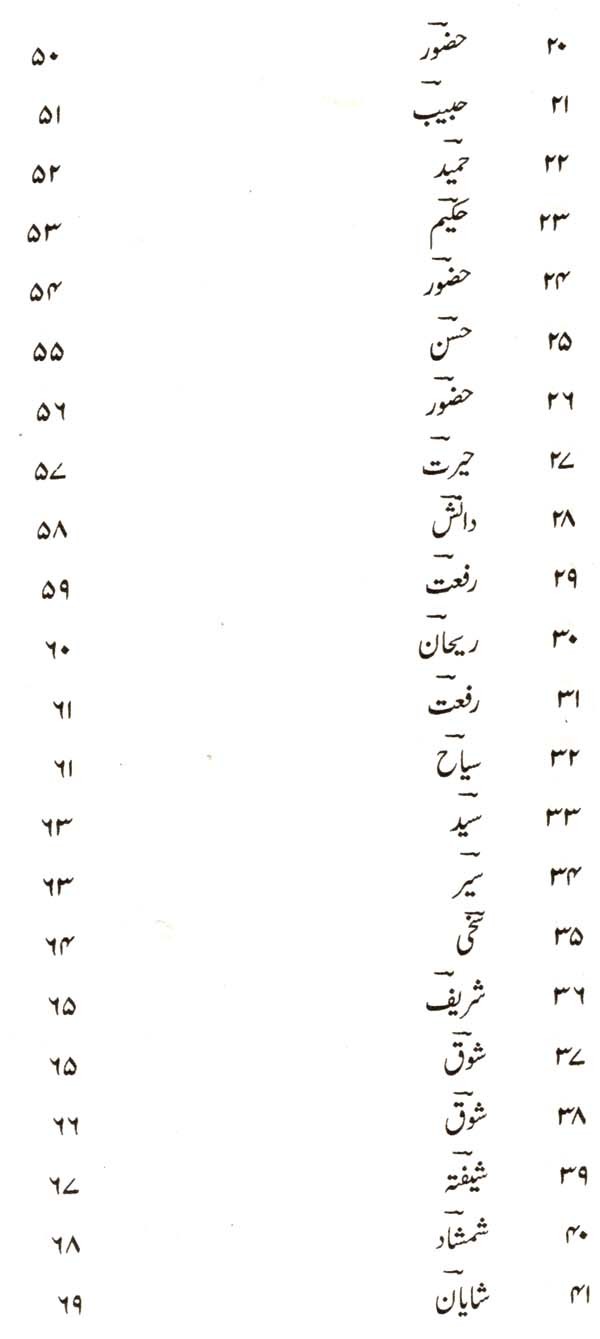 ۲۰ حضورؔ ۵۰
۲۱ حبیبؔ ۵۱
۲۲ حمیدؔ ۵۲
۲۳ حکیمؔ ۵۳
۲۴ حضورؔ ۵۴
۲۵ حسنؔ ۵۵
۲۶ حضورؔ ۵۶
۲۷ حیرتؔ ۵۷
۲۸ دانشؔ ۵۸
۲۹ رفعتؔ ۵۹
۳۰ ریحانؔ ۶۰
۳۱ رفعتؔ ۶۱
۳۲ سیاحؔ ۶۱
۳۳ سیدؔ ۶۳
۳۴ سیرؔ ۶۳
۳۵ سخیؔ ۶۴
۳۶ شریفؔ ۶۵
۳۷ شوقؔ ۶۵
۳۸ شوقؔ ۶۶
۳۹ شیفتہؔ ۶۷
۴۰ شمشادؔ ۶۸
۴۱ شایانؔ ۶۹